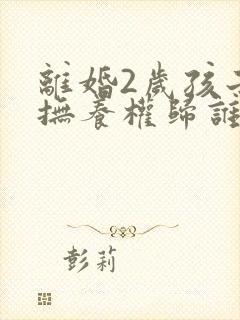 離婚2歲孩子
撫養權歸誰
彭莉